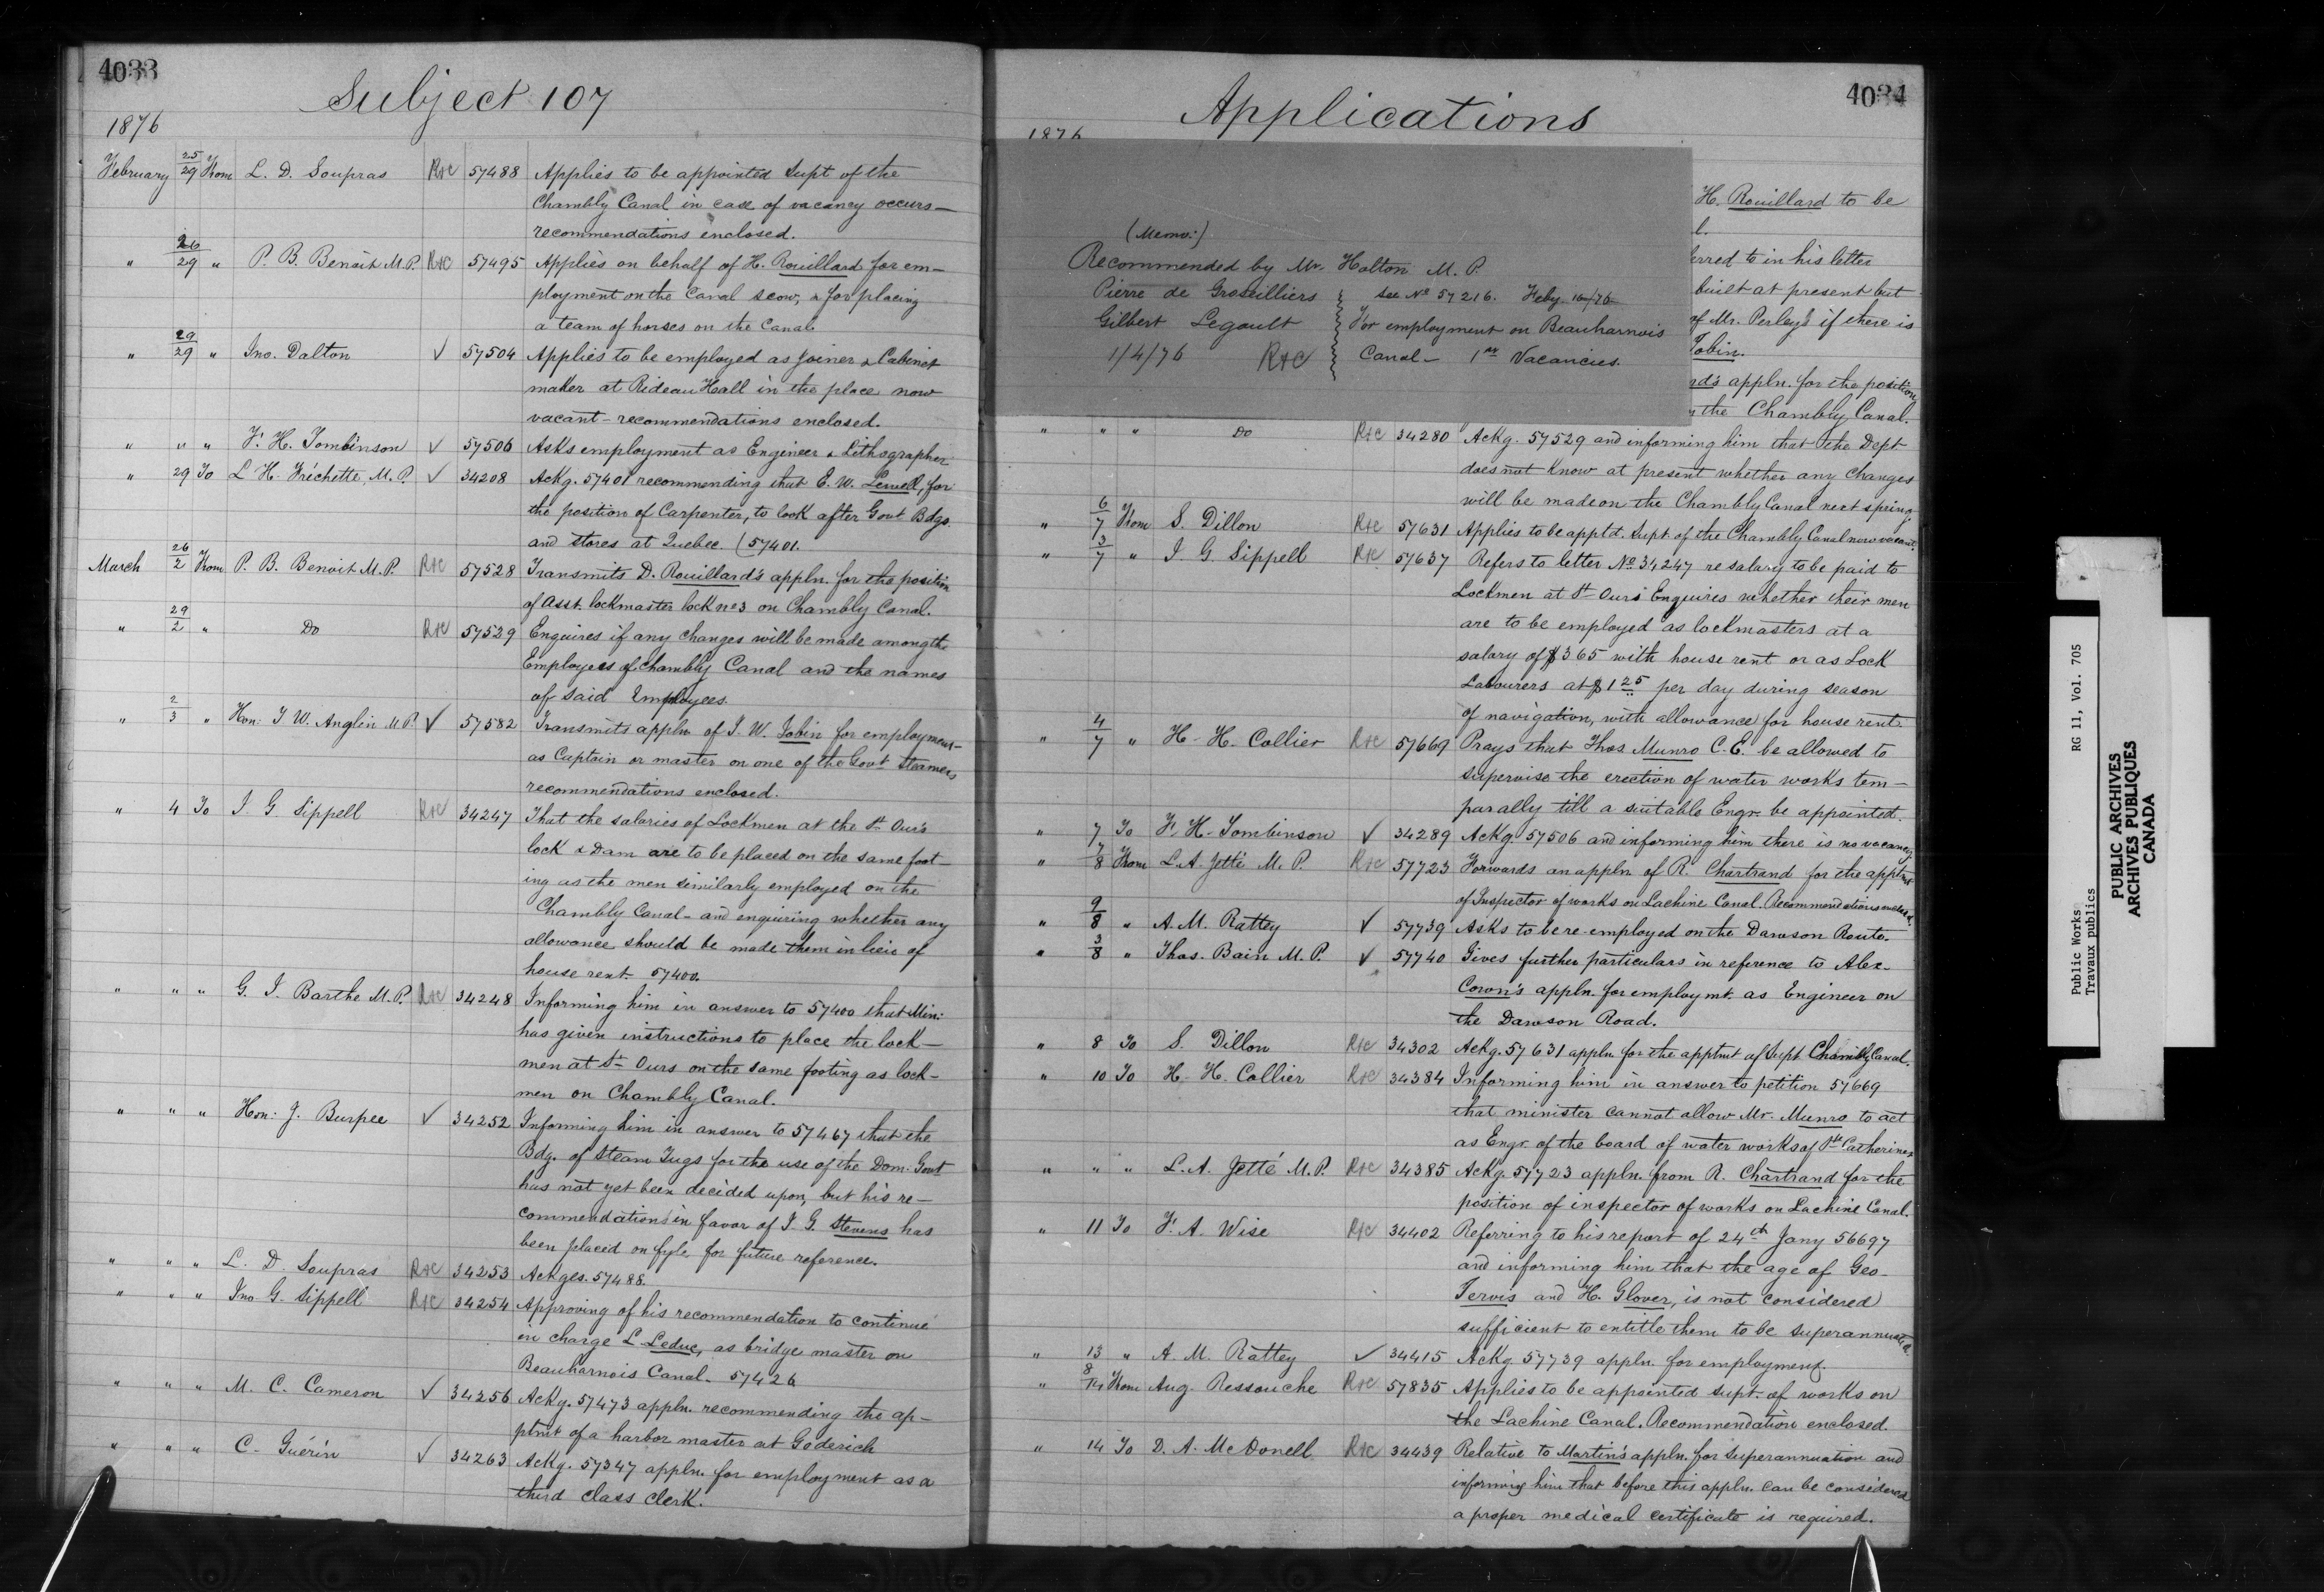 4033
Subject 107
1876
February 25/29 From L. D. Soupras R+C 57488 Applies to be appointed Supt of the
Chambly Canal in case of vacancy occurs—
recommendations enclosed.
" 26/29 " P. B. Benoit M.P. R+C 57495 Applies on behalf of H. Rouillard for em-
ployment on the Canal scow, & for placing
a team of horses on the Canal
" 29/29 " Jno. Dalton ✓ 57504 Applies to be employed as Joiner & Cabinet
maker at Rideau Hall in the place now
vacant - recommendations enclosed.
" " " F. H. Tombinson ✓ 57506 Asks employment as Engineer & Lithographer
" 29 To L. H. Fréchette, M.P. ✓ 34208 Ackg. 57401 recommending that E. W. Sewell, for
the position of Carpenter, to look after Govt Bdgs.
and stores at Quebec. (57401.
March 26/2 From P. B. Benoit M.P. R+C 57528 Transmits D. Rouillard's appln. for the position
of Asst. lockmaster lock no 3 on Chambly Canal.
" 29/2 " Do R+C 57529 Enquires if any changes will be made among the
Employees of Chambly Canal and the names
of said Employees.
" 2/3 " Hon: T. W. Anglin M.P. ✓ 57582 Transmits appln of J. W. Tobin for employment
as Captain or master on one of the Govt Steamers
recommendations enclosed.
" 4 To J. G. Sippell R+C 34247 That the salaries of Lockmen at the St. Our's
lock & Dam are to be placed on the same foot-
ing as the men similarly employed on the
Chambly Canal - and enquiring whether any
allowance should be made them in lieu of
house rent 57400.
" " " G. I. Barthe M.P. R+C 34248 Informing him in answer to 57400 that Min:
has given instructions to place the lock-
men at St. Ours on the same footing as lock-
men on Chambly Canal.
" " " Hon: J. Burpee ✓ 34252 Informing him in answer to 57467 that the
Bdg. of Steam Tugs for the use of the Dom. Govt
has not yet been decided upon, but his re-
commendations in favor of J. G. Stevens has
been placed on fyle for future reference.
" " " L. D. Soupras R+C 34253 Ackges. 57488.
" " " Jno G. Sippell R+C 34254 Approving of his recommendation to continue
in charge L Leduc, as bridge master on
Beauharnois Canal. 57426
" " " M. C. Cameron ✓ 34256 Ackg. 57473 appln. recommending the ap-
ptmt of a harbor master at Goderich
" " " C. Guérin ✓ 34263 Ackg. 57347 appln. for employment as a
third class clerk.
4034
Applications
1876
(Memo:)
Recommended by Mr. Holton M.P.
Pierre de Groseilliers see No 57216. Feby 16/76
Gilbert Legault For employment on Beauharnois
1/4/76 R+C Canal— 1st Vacancies.
H. Rouillard to be
l.
erred to in his letter
built at present but
of Mr. Perley's if there is
Tobin.
rd's appln. for the position
n the Chambly Canal.
" " " Do R+C 34280 Ackg. 57529 and informing him that the Dept
does not know at present whether any changes
will be made on the Chambly Canal next spring.
" 6/7 From S. Dillon R+C 57631 Applies to be apptd. Supt. of the Chambly Canal now vacant.
" 3/7 " J. G. Sippell R+C 57637 Refers to letter No 34247 re salary to be paid to
Lockmen at St Ours Enquires whether their men
are to be employed as lockmasters at a
salary of $365 with house rent or as Lock
Labourers at $1 25 per day during season
of navigation, with allowance for house rent.
" 4/7 " H. H. Collier R+C 57669 Prays that Thos. Munro C.E. be allowed to
supervise the erection of water works tem-
parally till a suitable Engr. be appointed.
" 7 To F. H. Tombinson ✓ 34289 Ackg. 57506 and informing him there is no vacancy
" 7/8 From L. A. Jetté M.P. R+C 57723 Forwards an appln of R. Chartrand for the apptmt
of Inspector of works on Lachine Canal. Recommendations enclosed.
" 9/8 " A. M. Rattey ✓ 57739 Asks to be re-employed on the Dawson Route.
" 3/8 " Thos. Bain M.P. ✓ 57740 Gives further particulars in reference to Alex.
Cown's appln. for employmt. as Engineer on
the Dawson Road.
" 8 To S. Dillon R+C 34302 Ackg. 57631 appln for the apptmt of Supt Chambly Canal.
" 10 To H. H. Collier R+C 34384 Informing him in answer to petition 57669
that minister cannot allow Mr. Munro to act
as Engr. of the board of water works of St. Catherines
" " " L. A. Jetté M.P. R+C 34385 Ackg. 57723 appln. from R. Chartrand for the
position of inspector of works on Lachine Canal.
" 11 To F. A. Wise R+C 34402 Referring to his report of 24th Jany 56697
and informing him that the age of Geo.
Jervis and H. Glover, is not considered
sufficient to entitle them to be superannuated.
" 13 " A. M. Rattey ✓ 34415 Ackg 57739 appln. for employment.
" 8/14 From Aug. Ressouche R+C 57835 Applies to be appointed supt. of works on
the Lachine Canal. Recommendation enclosed.
" 14 To D. A. McDonell R+C 34439 Relative to Martin's appln. for superannuation and
informing him that before this appln. can be considered
a proper medical certificate is required.
Public Works RG 11, Vol. 705
Travaux publics
PUBLIC ARCHIVES
ARCHIVES PUBLIQUES
CANADA